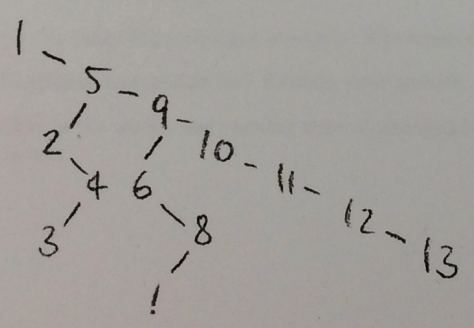 1
5 - 9 - 10 - 11 - 12 - 13
2
4 6
3 8
!